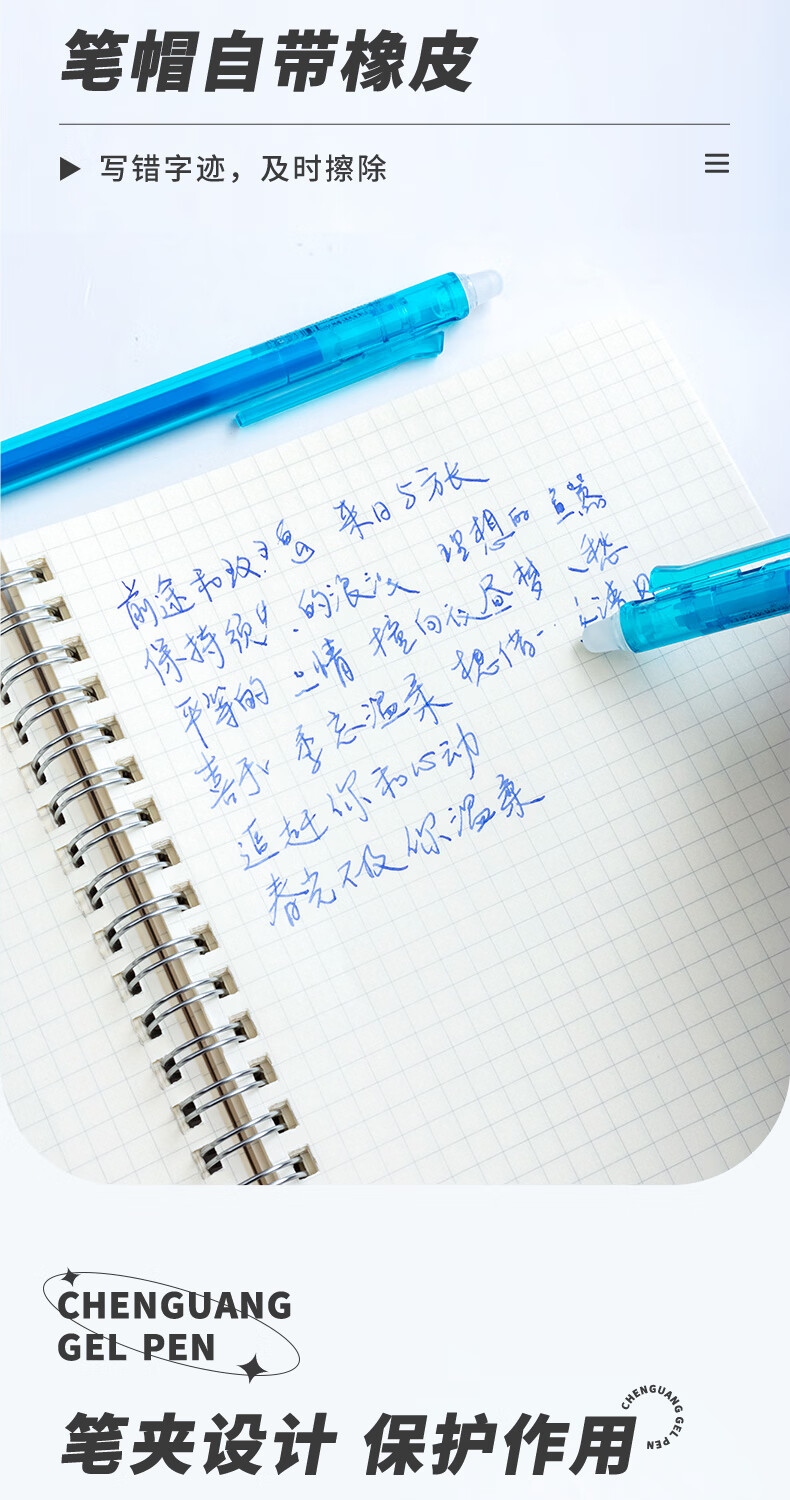 笔帽自带橡皮
写错字迹，及时擦除
前途和玫瑰 来日与方长
保持 的浪漫 理想的
平等的 情 擅 梦
喜 季忘温柔
追赶你和心动
春光不及你温柔
CHENGUANG
GEL PEN
笔夹设计 保护作用
CHENGUANG GEL PEN